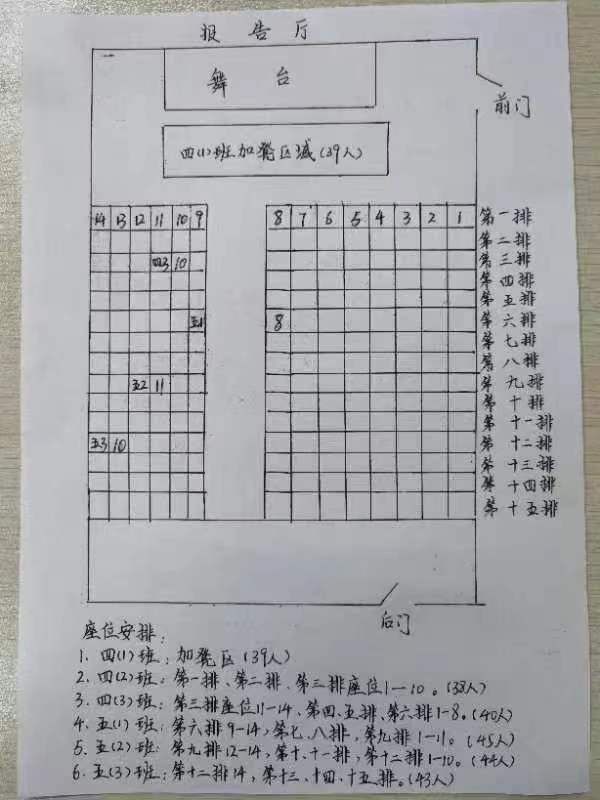 报告厅
舞台
前门
四(1)班加凳区域(39人)
14 13 12 11 10 9 8 7 6 5 4 3 2 1 第一排
第二排
四3 10 第三排
第四排
第五排
五1 8 第六排
第七排
第八排
五2 11 第九排
第十排
第十一排
五3 10 第十二排
第十三排
第十四排
第十五排
后门
座位安排:
1. 四(1)班:加凳区(39人)
2. 四(2)班:第一排、第二排、第三排座位1—10。(38人)
3. 四(3)班:第三排座位11-14、第四、五排、第六排1-8。(40人)
4. 五(1)班:第六排9-14,第七、八排,第九排1-11。(45人)
5. 五(2)班:第九排12-14,第十、十一排,第十二排1-10。(44人)
6. 五(3)班:第十二排14,第十三、十四、十五排。(43人)